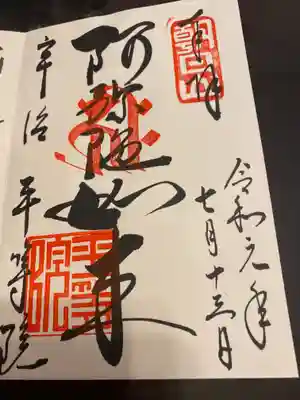 奉拝
令和元年
七月十三日
阿弥陀如来
宇治 平等院
平等院